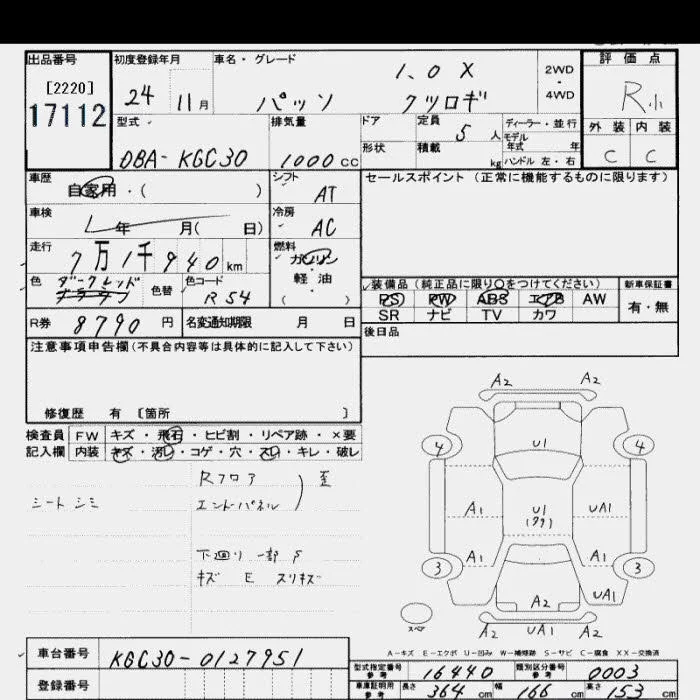 出品番号
[2220]
17112
初度登録年月
24 11月
車名・グレード
1.0 X
パッソ クツロギ
2WD
・
4WD
評価点
R小
外装 内装
C C
型式
DBA-KGC30
排気量
1000cc
ドア
形状
定員 5人
積載 kg
ディーラー・並行
モデル
年式 年
ハンドル 左・右
車歴
自家用・( )
シフト
AT
車検
年 月( 日)
冷房
AC
走行
7万1千940km
燃料
ガソリン
・
軽油
( )
色
ダークレッド
ブラウン
色替
色コード
R54
R券 8790円
名変通知期限 月 日
セールスポイント (正常に機能するものに限ります)
装備品 (純正品に限り○をつけてください)
PS PW ABS エアB AW
SR ナビ TV カワ
新車保証書
有・無
後日品
注意事項申告欄(不具合内容等は具体的に記入して下さい)
修復歴 有 〔箇所 〕
検査員
記入欄
FW キズ・飛石・ヒビ割・リペア跡・×要
内装 キズ・汚レ・コゲ・穴・スレ・キレ・破レ
シート シミ
Rフロア
エンドパネル
歪
下廻り 一部 P
キズ E スリキズ
A2 A2
4 4
U1
A1 UA1
U1
A1 A1
3 3
A2 UA1
A2 UA1 A2
スペア
A-キズ E-エクボ U-凹み W-補修跡 S-サビ C-腐食 XX-交換済
車台番号 KGC30-0127951
登録番号
型式指定番号
参考
16440
類別区分番号
参考
0003
車庫証明用
参考
長さ 364 cm
幅 166 cm
高さ 153 cm